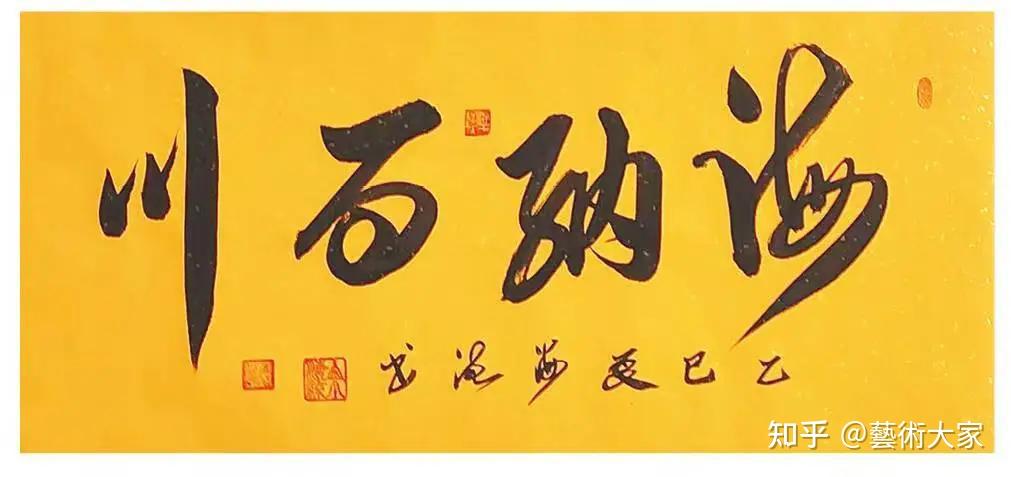 海纳百川
乙巳夏海书
知乎 @藝術大家